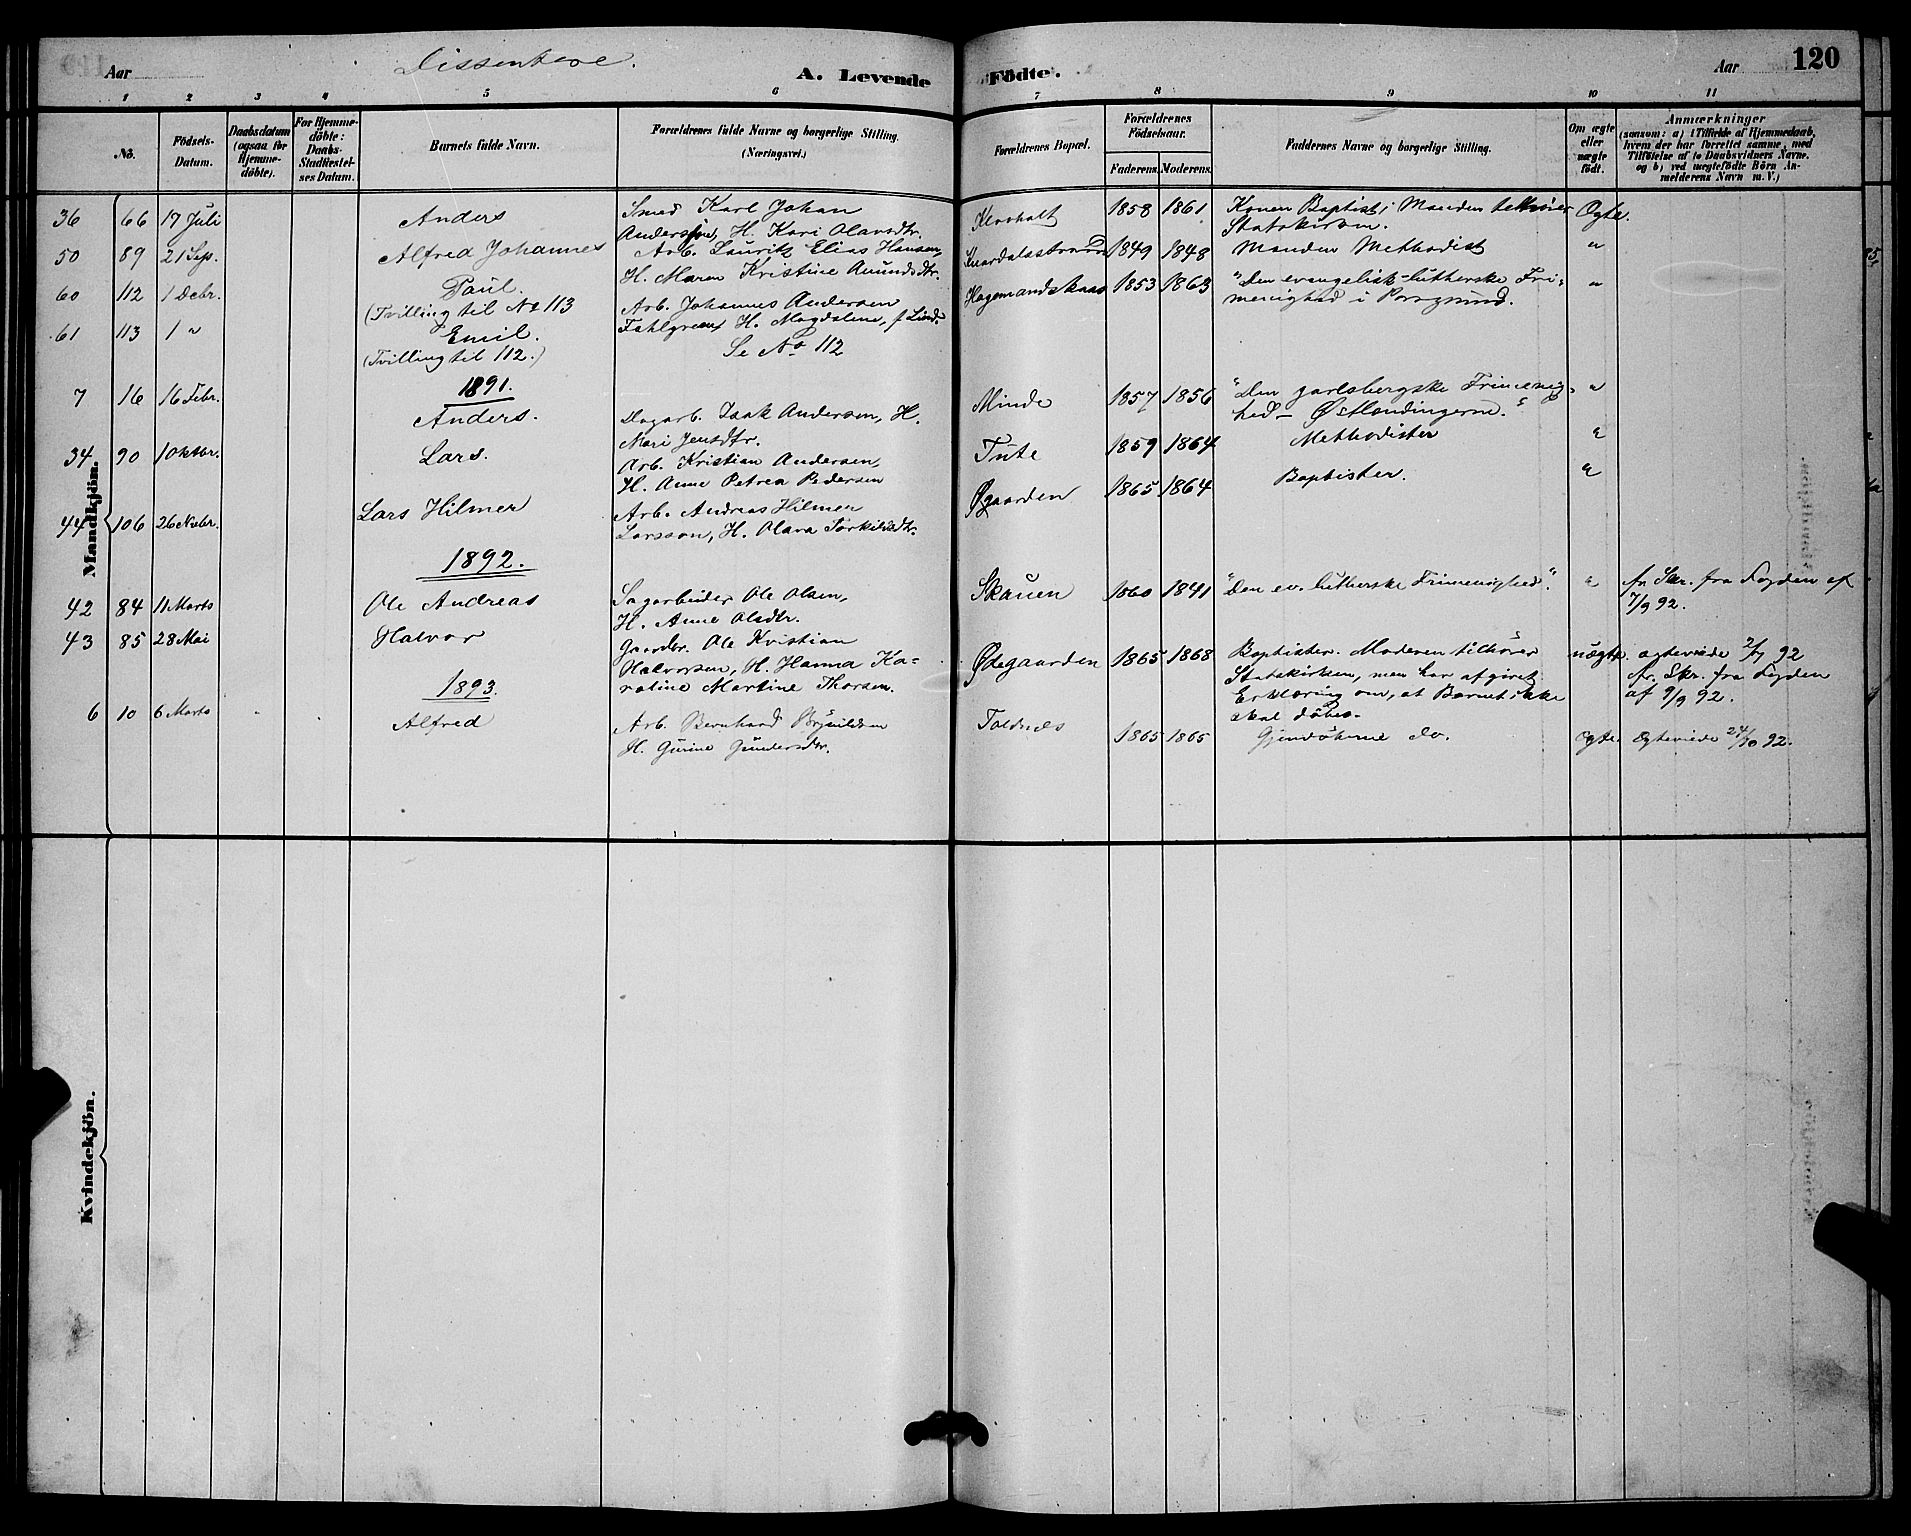 Aar
Dissentere.
A. Levende
Födte.
Aar
120
1 2 3 4 5 6 7 8 9 10 11
No.
Födsels-
Datum.
Daabsdatum
(ogsaa for
Hjemme-
döbte).
For Hjemme-
döbte:
Daabs-
Stadfæstel-
ses Datum.
Barnets fulde Navn.
Forældrenes fulde Navne og borgerlige Stilling.
(Næringsvei.)
Forældrenes Bopæl.
Forældrenes
Födselsaar.
Faderens. Moderens.
Faddernes Navne og borgerlige Stilling.
Om ægte
eller
uægte
födt.
Anmærkninger
(saasom: a) i Tilfælde af Hjemmedaab,
hvem der har forrettet samme, med
Tilföielse af to Daabsvidners Navne,
og b) ved uægtefödte Börn An-
melderens Navn m. V.)
Mandkjön.
36 66 17 Juli Anders
Smed Karl Johan
Anderssen, H. Kari Olavsdtr.
1858 1861
Konen Baptist; Manden tilhører
Statskirken.
Ægte.
50 89 21 Sep. Alfred Johannes
Arb. Lauritz Elias Hansen,
H. Maren Kristine Amundsdtr.
Knardalsstranden 1849 1848 Manden Methodist "
60 112 1 Debr. Paul.
(Tvilling til No 113
Arb. Johannes Andersen
Fahlgren, H. Magdalene, f. Lind.
1853 1863
"Den evangelisk-lutherske Fri-
menighed i Porsgrund.
"
61 113 1 " Emil.
(Tvilling til 112.)
Se No 112
1891.
7 16 16 Febr. Anders.
Dagarb. Isak Andersen, H.
Mari Jensdtr.
Minde 1857 1856
"Den jarlsbergske Frimenig-
hed – Østlændingerne."
"
34 90 1 Oktbr. Lars.
Arb. Kristian Andersen,
H. Anne Petrea Pedersen
Tufte 1859 1864 Methodister "
44 106 26 Novbr. Lars Hilmer
Arb. Andreas Hilmer
Larsson, H. Olava Torkildsdtr.
Øgaarden 1865 1864 Baptister. "
1892.
42 84 11 Marts Ole Andreas
Sagarbeider Ole Olsen,
H. Anne Olsdtr.
Skauen 1860 1841 "Den ev. lutherske Frimenighed". "
fr. Skr. fra Fogden af
7/9 92.
43 85 28 Mai Halvor
Gaardbr. Ole Kristian
Halvorsen, H. Hanna Ka-
roline Martine Thorsen.
Ødegaarden 1865 1868
Baptister. Moderen tilhører
Statskirken, men har afgivet
Erklæring om, at Barnet ikke
skal døbes.
uægte.
ægteviede 2/7 92
fr. Skr. fra Fogden
af 9/9 92.
1893.
6 10 6 Marts Alfred
Arb. Bernhard Brynildsen
H. Gurine Gundersdtr.
Toldnes 1865 1865 Gjendøberne do. Ægte. Ægteviede 24/10 92.
Kvindekjön.